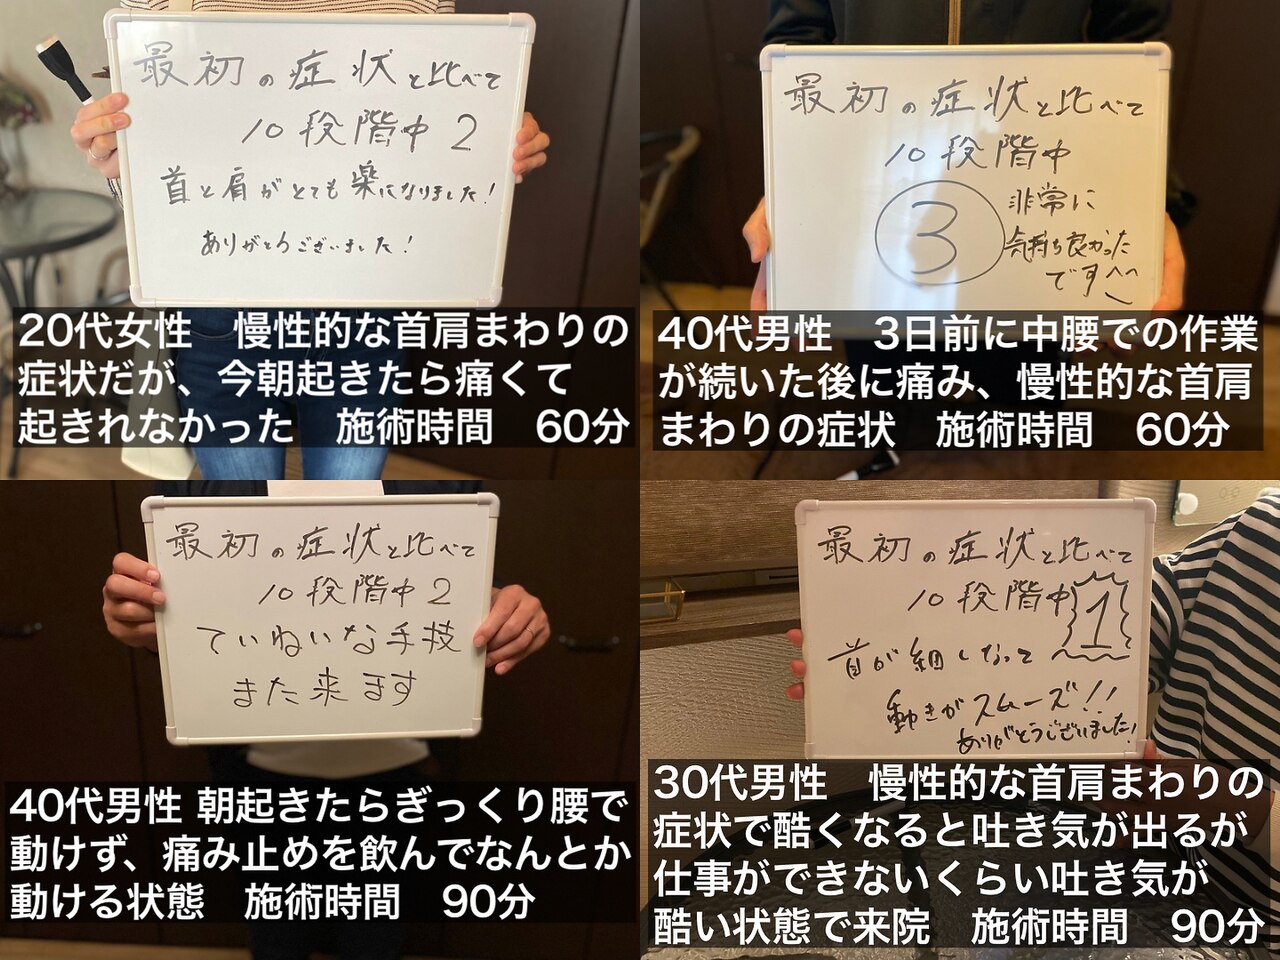 最初の症状と比べて
10段階中 2
首と肩がとても楽になりました!
ありがとうございました!
20代女性　慢性的な首肩まわりの
症状だが、今朝起きたら痛くて
起きれなかった　施術時間　60分
最初の症状と比べて
10段階中
3
非常に
気持ち良かった
です^^
40代男性　3日前に中腰での作業
が続いた後に痛み、慢性的な首肩
まわりの症状　施術時間　60分
最初の症状と比べて
10段階中 2
ていねいな手技
また来ます
40代男性 朝起きたらぎっくり腰で
動けず、痛み止めを飲んでなんとか
動ける状態　施術時間　90分
最初の症状と比べて
10段階中 1
首が細くなって
動きがスムーズ!!
ありがとうございました!
30代男性　慢性的な首肩まわりの
症状で酷くなると吐き気が出るが
仕事ができないくらい吐き気が
酷い状態で来院　施術時間　90分